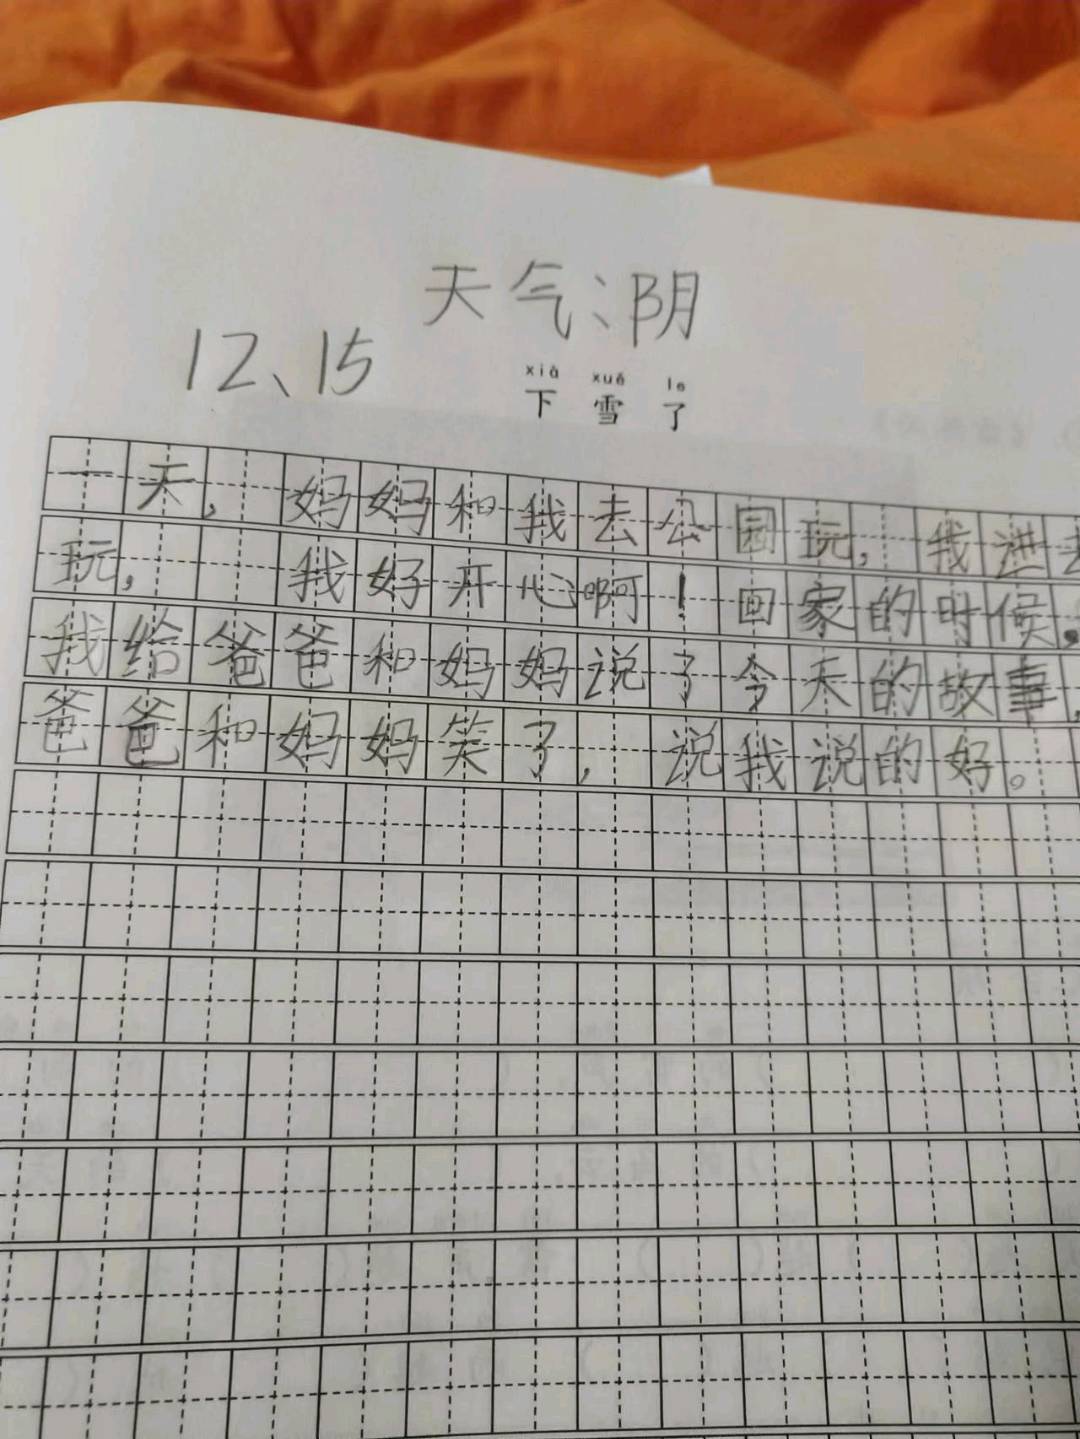 天气：阴
12、15
xià xuě le
下雪了
一天，妈妈和我去公园玩，我进去
玩，我好开心啊！回家的时候，
我给爸爸和妈妈说了今天的故事，
爸爸和妈妈笑了，说我说的好。